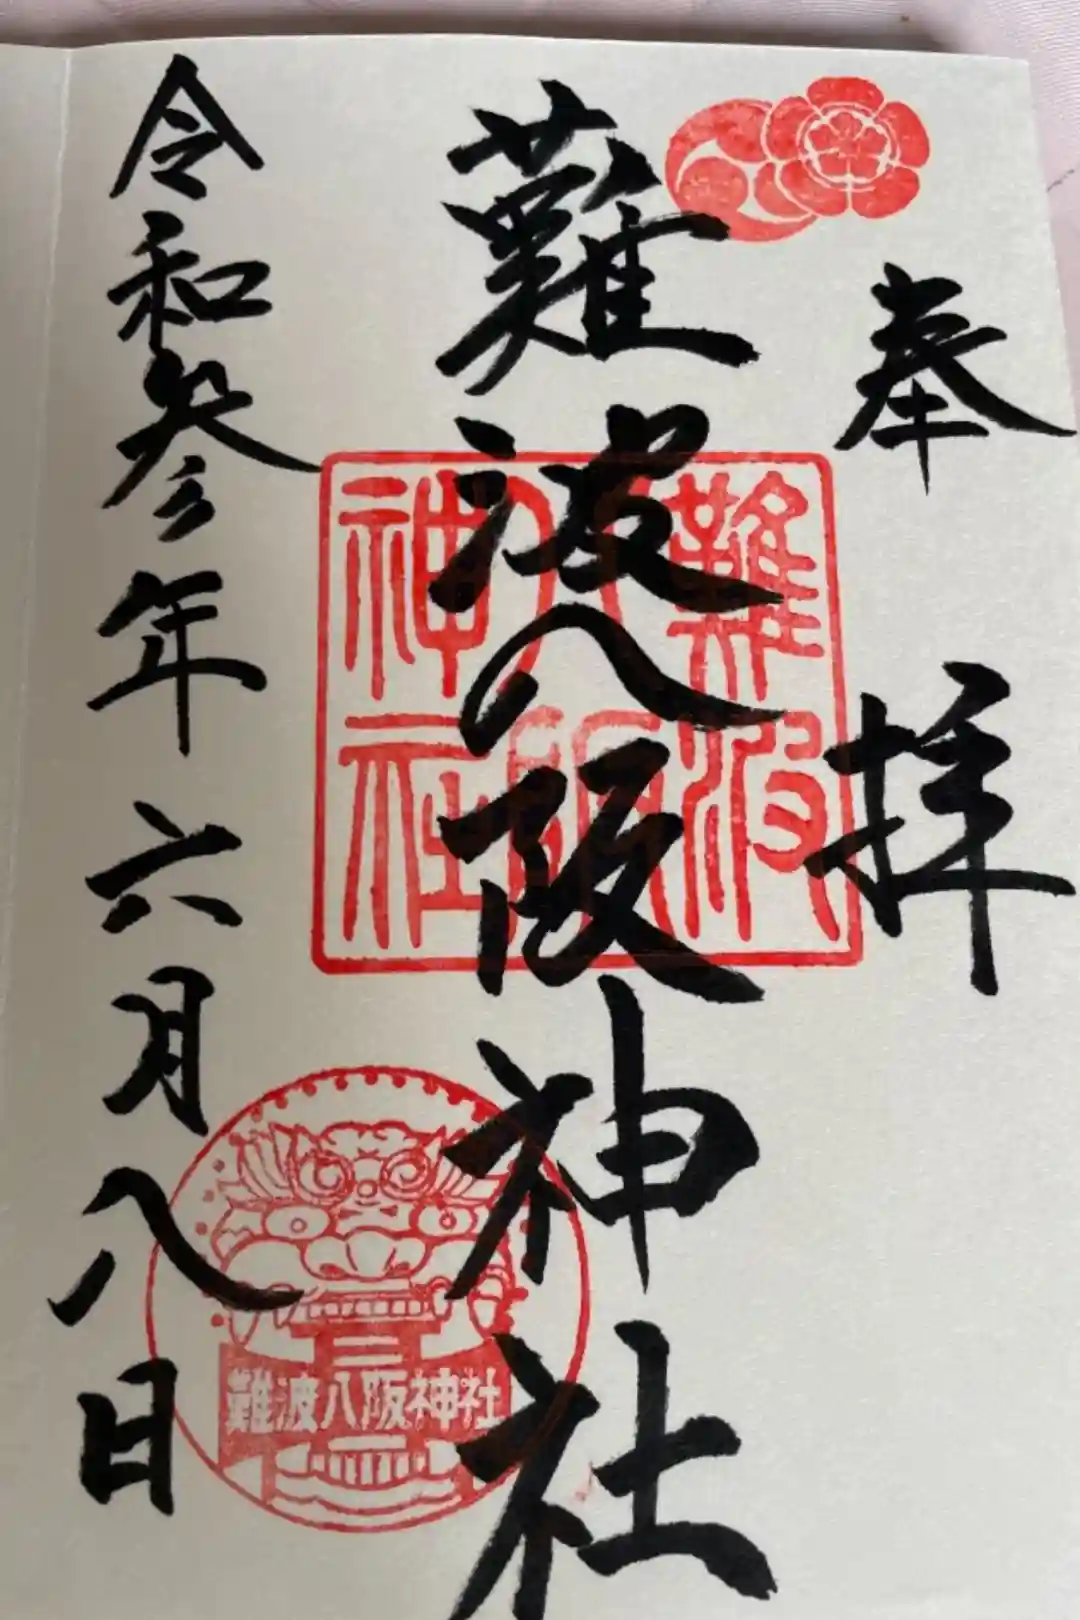 奉拝
難波八阪神社
令和参年六月八日
難波
八阪
神社
難波八阪神社